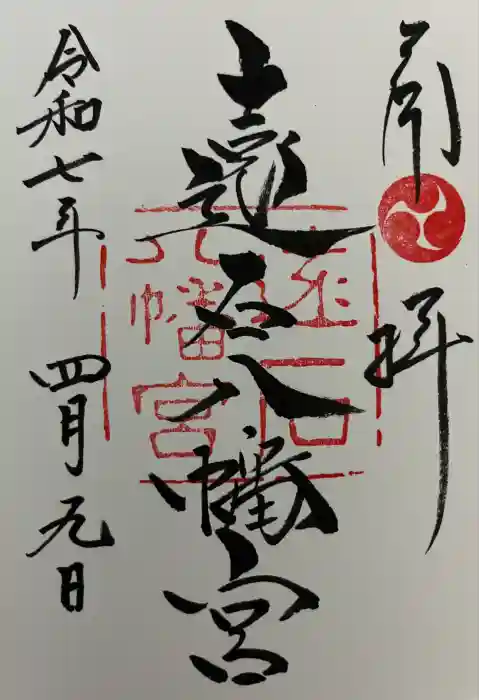 奉拝
遠石八幡宮
遠石八幡宮
令和七年 四月九日